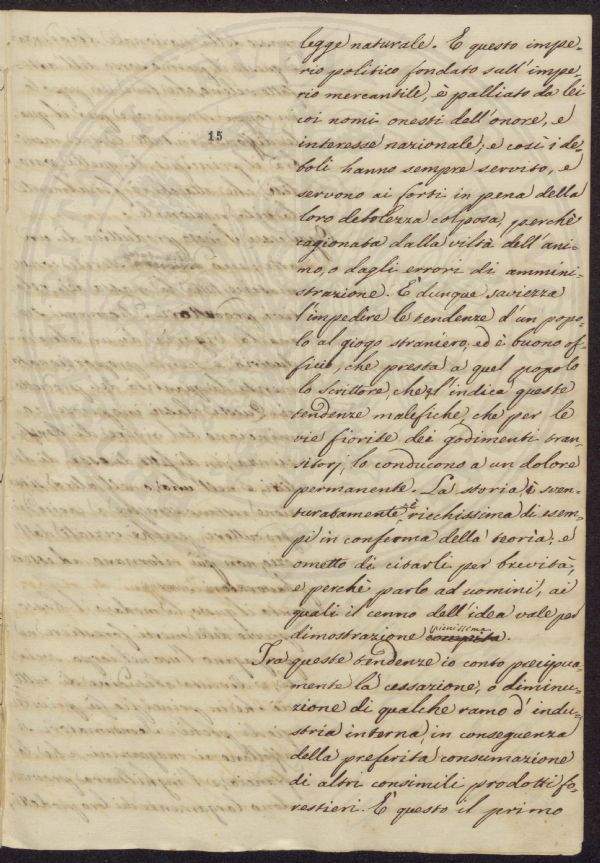 legge naturale. E questo impe-
rio politico fondato sull'impe-
rio mercantile, è palliato da lei
coi nomi onesti dell'onore, e
15
interesse nazionale; e così i de-
boli hanno sempre servito, e
servono ai forti in pena della
loro debolezza colposa, perchè
cagionata dalla viltà dell'ani-
mo, o dagli errori di ammini-
strazione. E' dunque saviezza
l'impedire le tendenze d'un popo-
lo al giogo straniero; ed è buono of-
ficio, che presta a quel popolo
lo scrittore, che gl'indica queste
tendenze malefiche, che per le
vie fiorite dei godimenti tran-
sitorj, lo conducono a un dolore
permanente. La storia, sven-
turatamente, è ricchissima di esem-
pi in conferma della teoria; e
ometto di citarli per brevità,
e perchè parlo ad uomini, ai
quali il cenno dell'idea vale per
dimostrazione pienissima.
Tra queste tendenze io conto precipua-
mente la cessazione, o diminu-
zione di qualche ramo d'indu-
stria interna, in conseguenza
della preferita consumazione
di altri consimili prodotti fo-
restieri. E' questo il primo